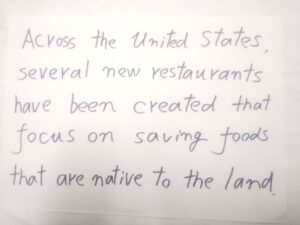 Across the United States,
several new restaurants
have been created that
focus on saving foods
that are native to the land.